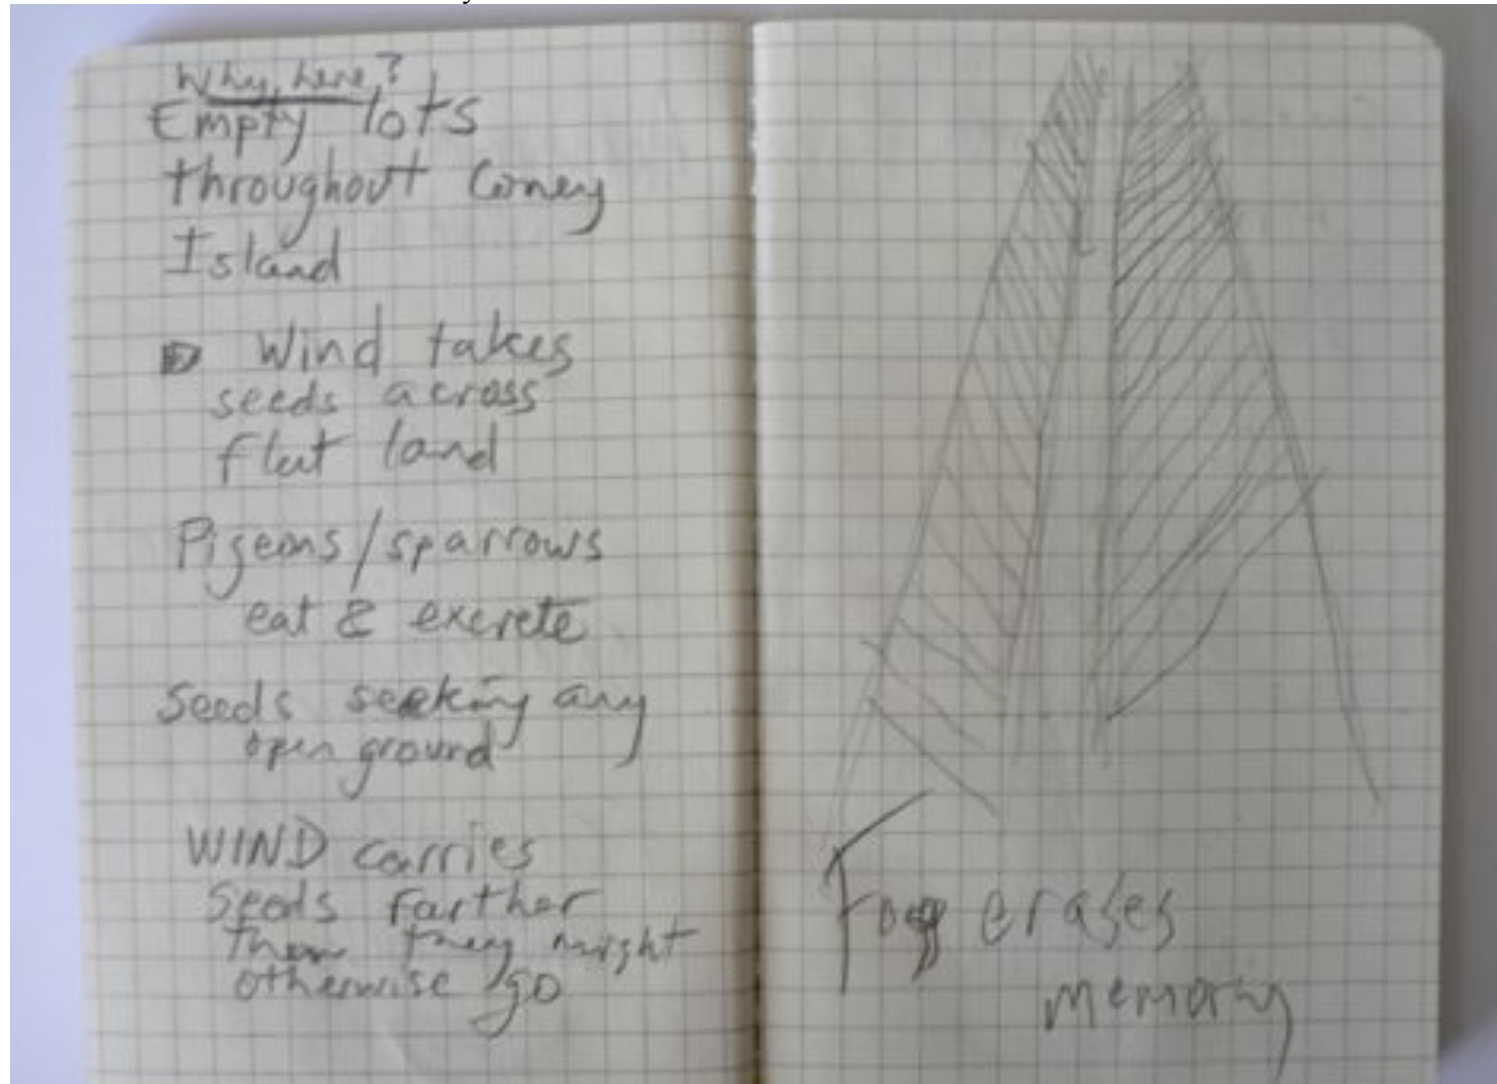 Why here?
Empty lots
throughout Coney
Island
Wind takes
seeds across
flat land
Pigeons/sparrows
eat & excrete
Seeds seeking any
open ground
WIND carries
Seeds farther
then they might
otherwise go
Fog erases
memory